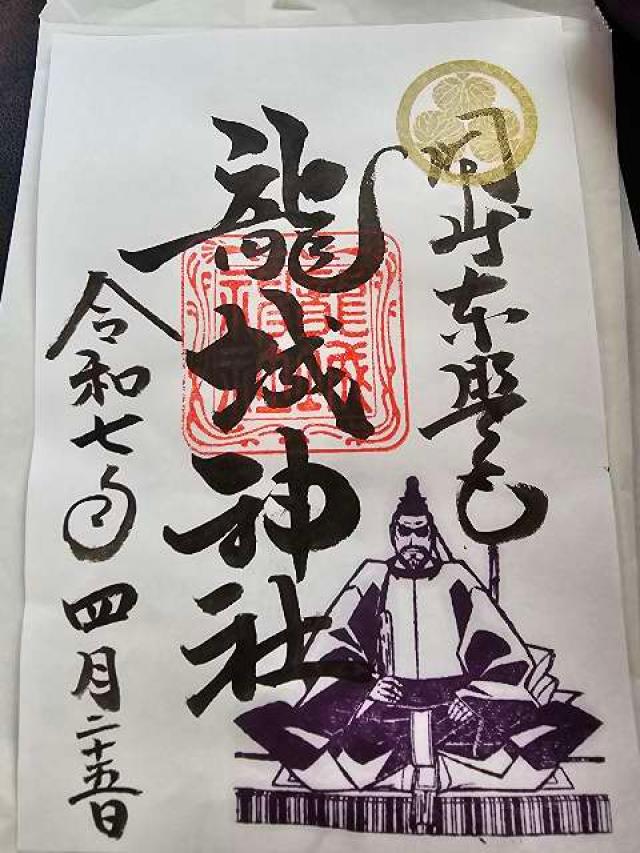 岡崎東照宮
龍城神社
令和七年四月二十五日
龍城神社